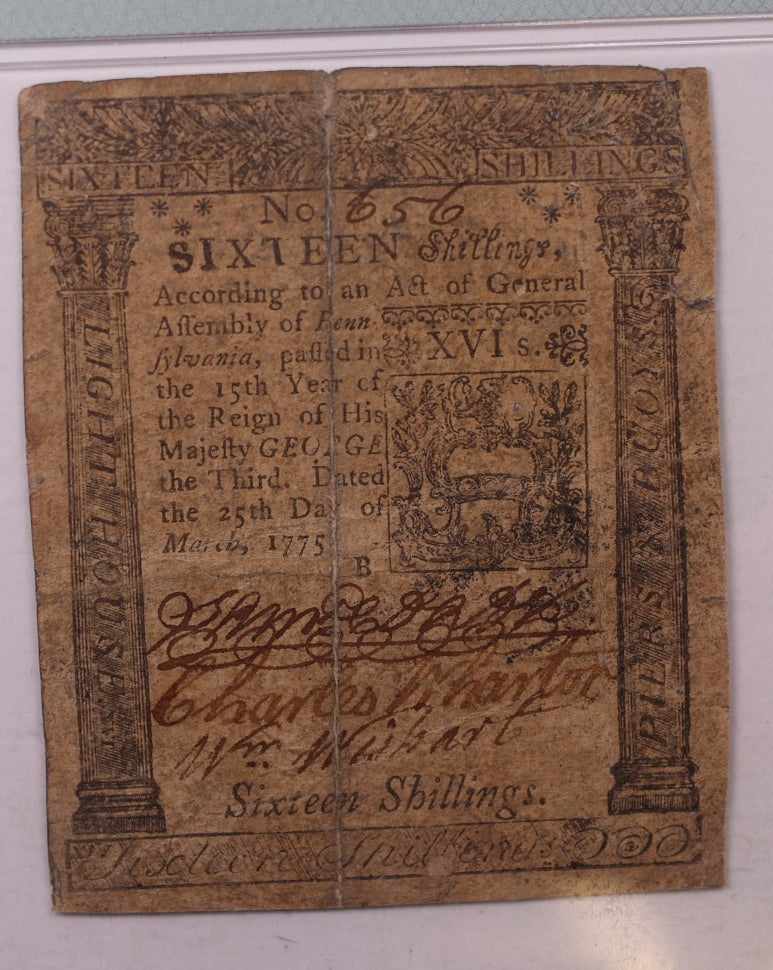 SIXTEEN SHILLINGS
No 656
SIXTEEN Shillings,
According to an Act of General
Aſſembly of Penn-
ſylvania, paſſed in
XVI s.
the 15th Year of
the Reign of His
Majeſty GEORGE
the Third. Dated
the 25th Day of
March, 1775
B
LIGHT HOUSE
PIERS & BUOYS.
16
Charles Wharton
Wm Wishart
Sixteen Shillings.
Sixteen Shillings